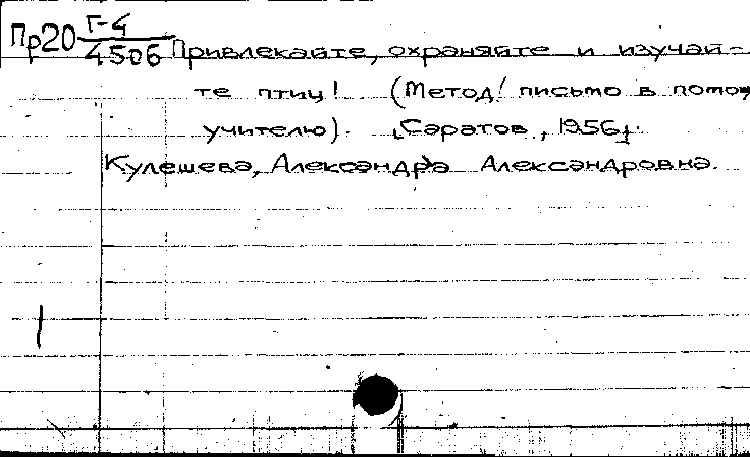 Пр20 Г-4
4506 Привлекайте, охраняйте и изучай=
те птиц! (Метод. письмо в помощ
учителю). [Саратов, 1956].
Кулешева, Александра Александровна.